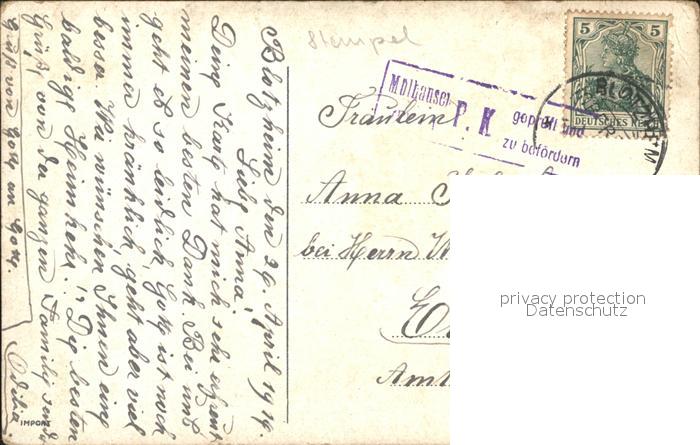 Blotzheim den 29. April 1919.
Liebe Anna!
Deine Karte hat mich sehr erfreut
meinen besten Dank. Bei uns
geht es so leidlich, Gott ist noch
immer kränklich, geht aber viel
besser. Wir wünschen Ihnen eine
baldige Heimkehr!, Die besten
Grüße von der ganzen Familie sendet
Gruß von
IMPORT
Stempel
Mülhausen
P. K
geprüft und
zu befördern
5 5
DEUTSCHES REICH
Fräulein
Anna
bei Herrn
Amt
privacy protection
Datenschutz